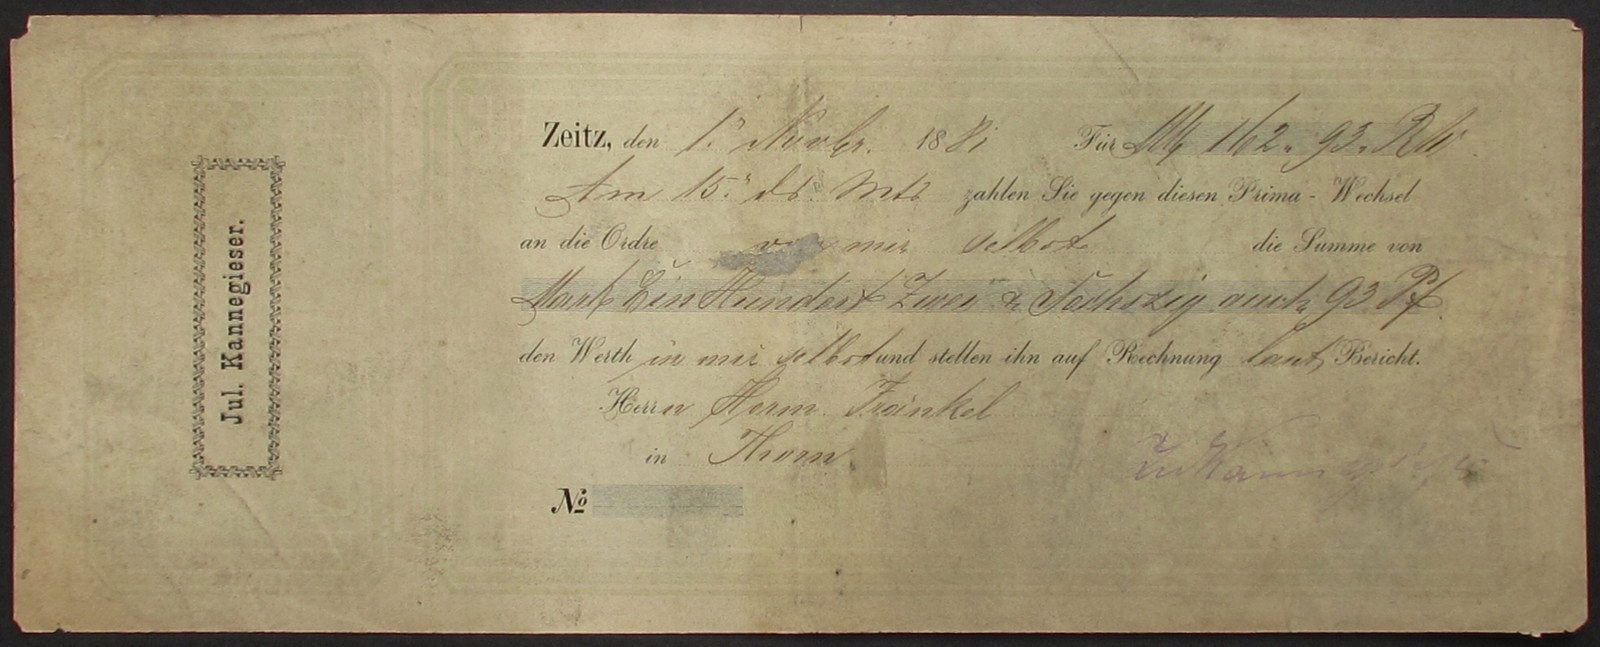 Jul. Kannegieser.
Zeitz, den 1. Novbr. 1881 Für Mk 162 " 93 "
Am 15. ds. Mts zahlen Sie gegen diesen Prima-Wechsel
an die Ordre von mir selbst die Summe von
Mark Ein Hundert Zwei & Sechszig auch 93 Pf
den Werth in mir selbst und stellen ihn auf Rechnung laut Bericht.
Herrn Herm. Fränkel
in Thorn
Jul Kannegieser
No